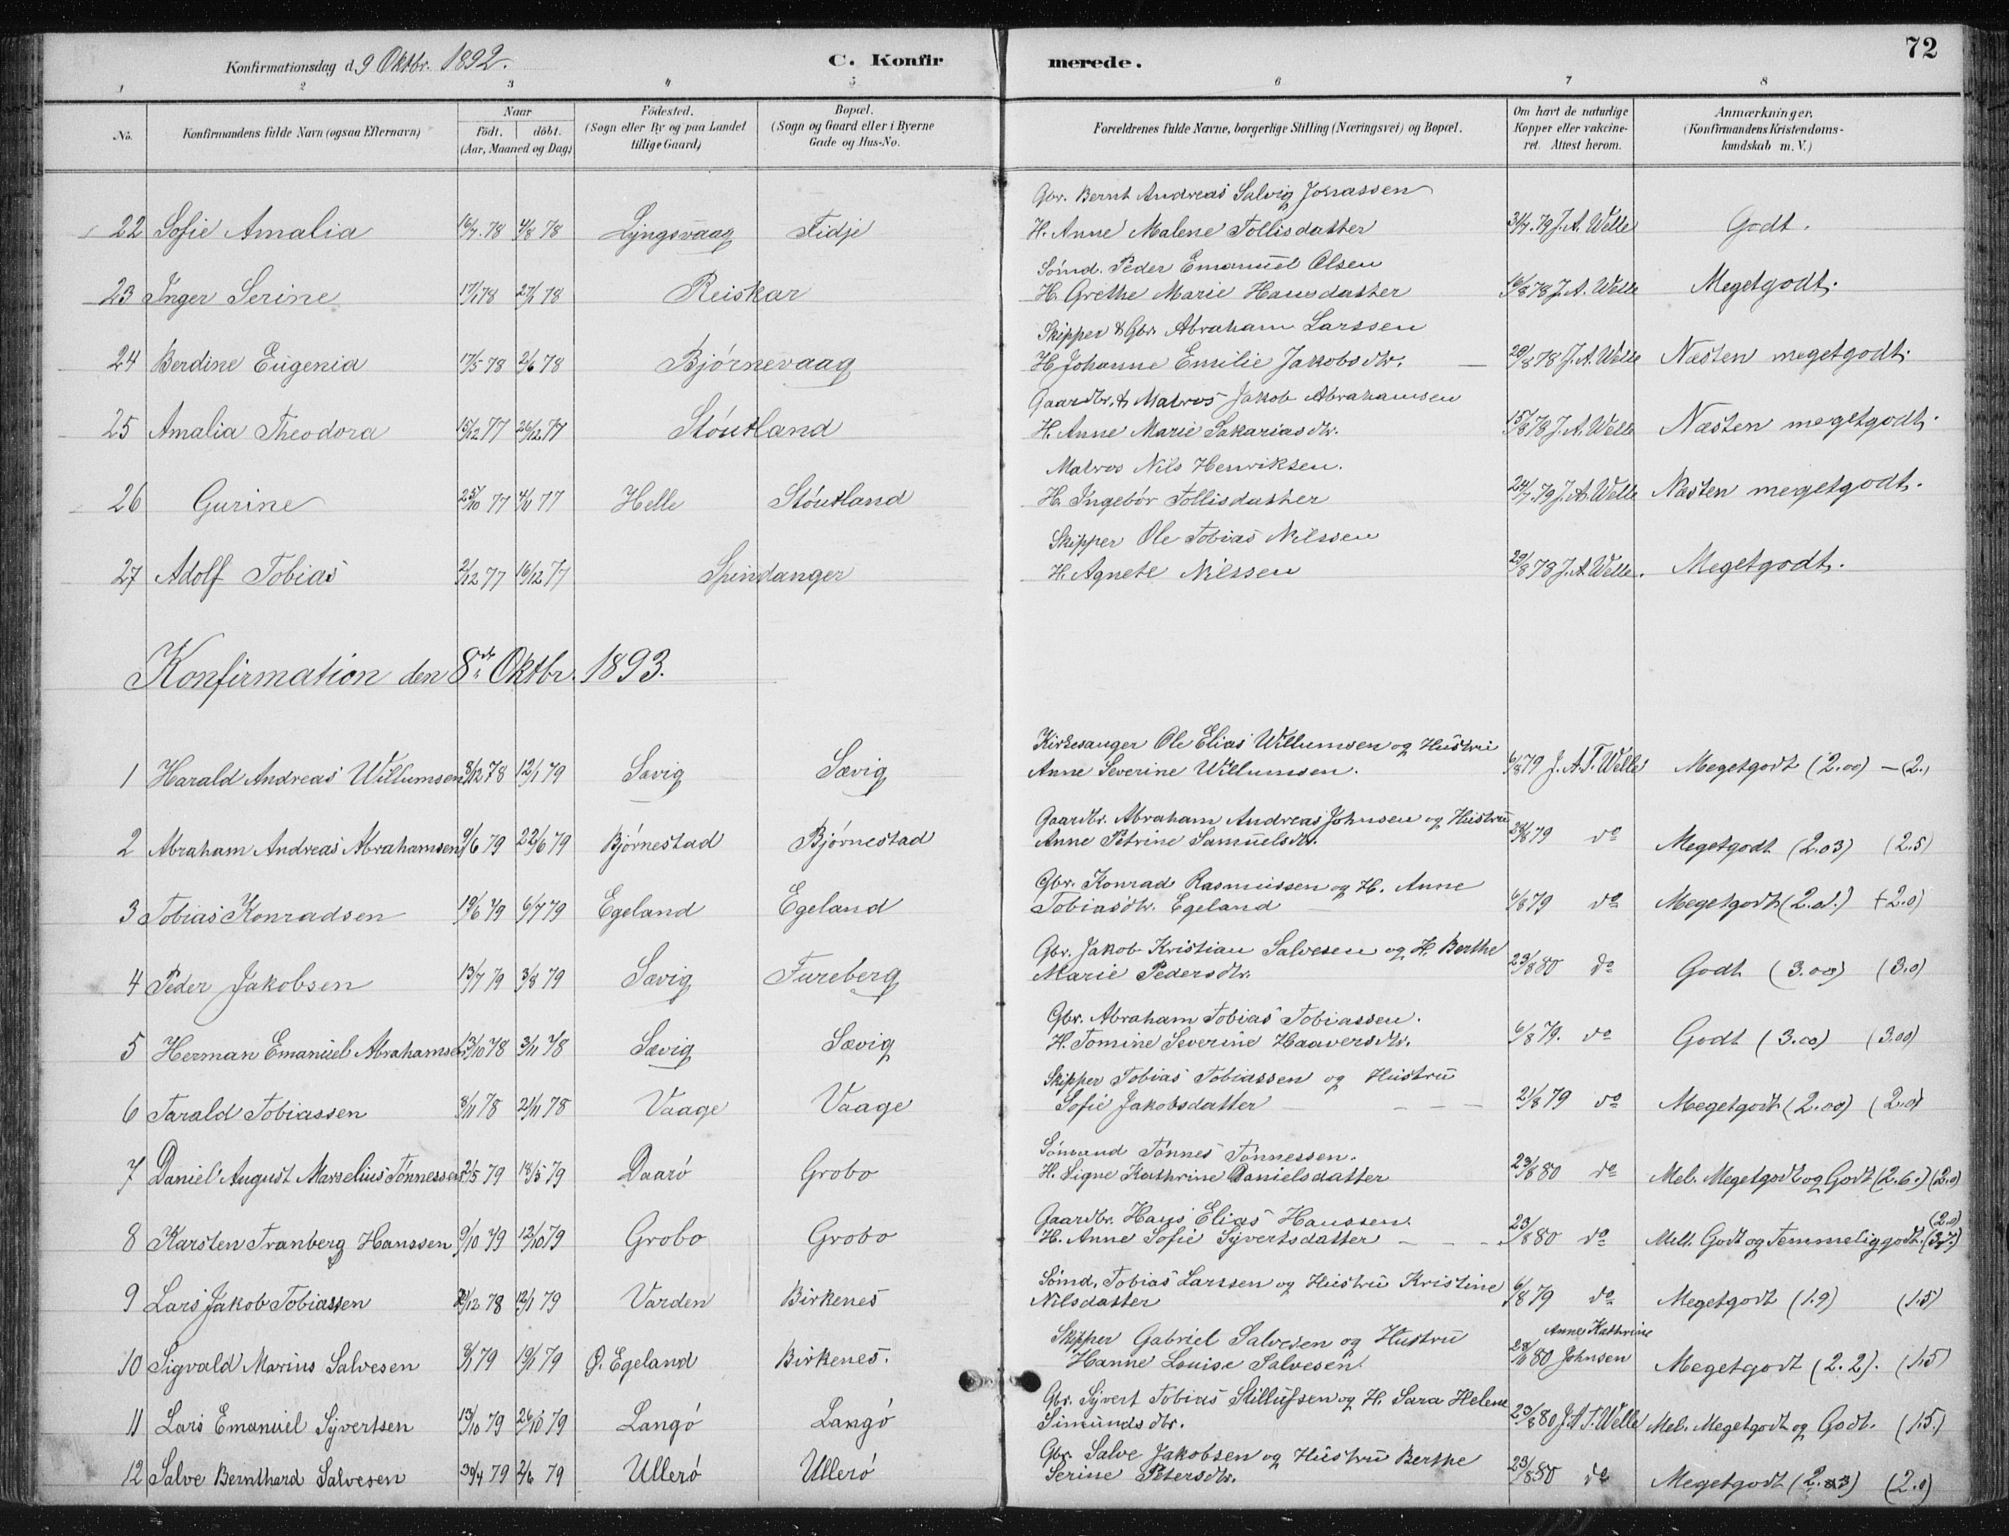 72
Konfirmationsdag d. 9 Oktbr. 1892.
C. Konfirmerede.
1 2 3 4 5 6 7 8
No.
Konfirmandens fulde Navn (ogsaa Efternavn)
Naar
födt. döbt.
(Aar, Maaned og Dag)
Födested.
(Sogn eller By og paa Landet
tillige Gaard)
Bopæl.
(Sogn og Gaard eller i Byerne
Gade og Hus-No.
Forældrenes fulde Navne, borgerlige Stilling (Næringsvei) og Bopæl.
Om havt de naturlige
Kopper eller vakcine-
ret. Attest herom.
Anmærkninger.
(Konfirmandens Kristendoms-
kundskab m. V.)
Gbr. Bernt Andreas Salvig Jonassen
22 Sofie Amalia 16/7.78 4/8 78 Lyngsvaag Fidje H. Anne Malene Tollisdatter 31/7.79 J. A. Welle Godt.
Sömd. Peder Emanuel Olsen
23 Inger Serine 17/1 78 27/1 78 Reiskar H. Grethe Marie Hansdatter 16/8 78 J. A. Welle Megetgodt.
Skipper & Gbr. Abraham Larssen
24 Berdine Eugenia 17/5 78 2/6 78 Bjørnevaag H. Johanne Emilie Jakobsdtr. 20/8 78 J. A. Welle Næsten megetgodt.
Gaardbr. & Matros Jakob Abrahamsen
25 Amalia Theodora 15/12 77 26/12 77 Stóutland H. Anne Marie Sakariasdtr. 15/8 78 J. A. Welle Næsten megetgodt.
Matros Nils Henriksen.
26 Gurine 25/10 77 4/11 77 Helle Stóutland H. Ingebór Tollisdatter 24/7.79 J. A. Welle Næsten megetgodt.
Skipper Ole Tobias Nilssen
27 Adolf Tobias 2/12 77 16/12 77 Spindanger H. Agnete Nilssen 20/8 78 J. A. Welle. Megetgodt.
Konfirmation den 8de Oktbr. 1893.
Kirkesanger Ole Elias Willumsen og Hustru
1 Harald Andreas Willumsen 8/12 78 12/1 79 Sævig Sævig Anne Severine Willumsen. 6/8 79 J. A. T. Welle Megetgodt (2.00) – (2.)
Gaardbr. Abraham Andreas Johnsen og Hustru
2 Abraham Andreas Abrahamsen 9/6 79 22/6 79 Bjórnestad Bjórnestad Anne Petrine Samuelsdtr. 79 do Megetgodt (2.03) (2.5)
Gbr. Konrad Rasmussen og H. Anne
3 Tobias Konradsen 19/6 79 6/7 79 Egeland Egeland Tobiasdtr. Egeland 6/8 79 do Megetgodt (2.0)
Gbr. Jakob Kristian Salvesen og H. Berthe
4 Peder Jakobsen 13/7 79 3/8 79 Sævig Fureberg Marie Pedersdtr. 23/8 80 do Godt (3.00) (3.0)
Gbr. Abraham Tobias Tobiassen.
5 Herman Emanuel Abrahamsen 13/10 78 3/11 78 Sævig Sævig H. Tomine Severine Haaversdtr. 6/8 79. do Godt (3.00) (3.00)
Skipper Tobias Tobiassen og Hustru
6 Tarald Tobiassen 8/11 78 21/11 78 Vaage Vaage Sofie Jakobsdatter 21/8 79 do Megetgodt (2.00) (2.0)
Sómand Tónnes Tónnessen.
7 Daniel August Marselius Tónnessen 2/5 79 18/5 79 Daaró Grobo H. Signe Kathrine Danielsdatter 23/8 80 do Mel. Megetgodt og Godt (2.6.) (2.0)
Gaardbr. Hans Elias Hanssen.
8 Karsten Tranberg Hanssen 9/10 79 12/10 79 Grobo Grobo H. Anne Sofie Syvertsdatter 23/8 80 do Mell. Godt og Temmeliggodt. (3.7.) (2.0)
Sómd. Tobias Larssen og Hustru Kristine
9 Lars Jakob Tobiassen 78 12/1 79 Varden Birkenes Nilsdatter 6/8 79 do Megetgodt (1.9) (1.5)
Skipper Gabriel Salvesen og Hustru Anne Kathrine
10 Sigvald Marius Salvesen 79 19/1 79 Ø. Egeland Birkenes. Hanne Louise Salvesen. 80 Johnsen Megetgodt (2.2). (1.5)
Gbr. Syvert Tobias Stillufsen og H. Sara Helene
11 Lars Emanuel Syvertsen 13/10 79 26/10 79 Langó Langó Simundsdtr. 23/8 80 J. A. T. Welle Mel. Megetgodt og Godt. (1.5.)
Gbr. Salve Jakobsen og Hustru Berthe
12 Salve Bernthard Salvesen 30/4 79 2/6 79 Ulleró Ulleró Serine Petersdtr. 23/8 80 do Megetgodt (2.03) (2.0)